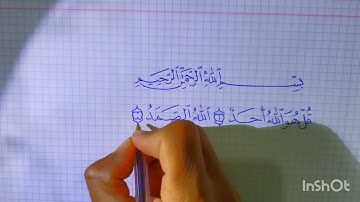 بِسْمِ اللهِ الرَّحْمٰنِ الرَّحِيمِ
قُلْ هُوَ اللهُ أَحَدٌ ۝ اللهُ الصَّمَدُ ۝
InShot